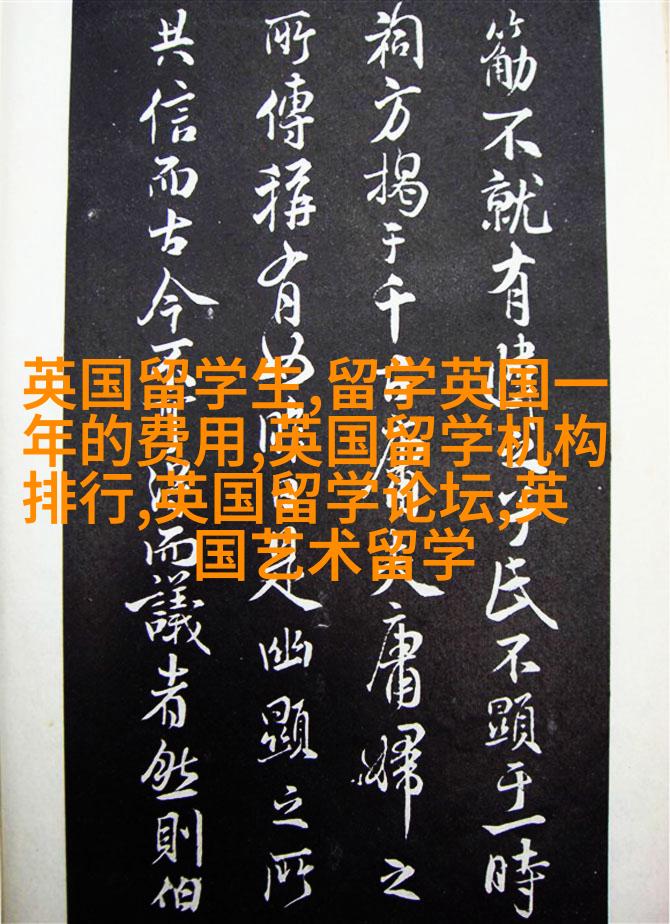 不就有氏不顯于一時
祠方揭于千古庸夫庸婦之
所傳稱有是幽顯之所
共信而古今不而議者然則伯
英国留学生,留学英国一
年的费用,英国留学机构
排行,英国留学论坛,英
国艺术留学